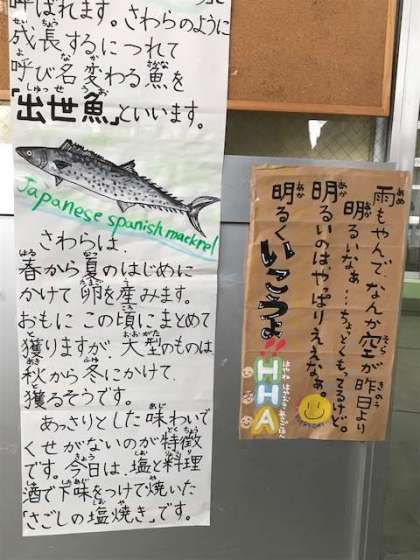 呼ばれます。さわらのように
成長するにつれて
呼び名変わる魚を
「出世魚」といいます。
Japanese spanish mackrel
さわらは、
春から夏のはじめに
かけて卵を産みます。
おもにこの頃にまとめて
獲りますが、大型のものは
秋から冬にかけて
獲るそうです。
あっさりとした味わいで
くせがないのが特徴
です。今日は、塩と料理
酒で下味をつけて焼いた
「さごしの塩焼き」です。
雨もやんでなんか空が昨日より
明るいなぁ…ちょっとくもってるけど。
明るいのはやっぱりええなぁ。
明るくいこうよ!!
HHA